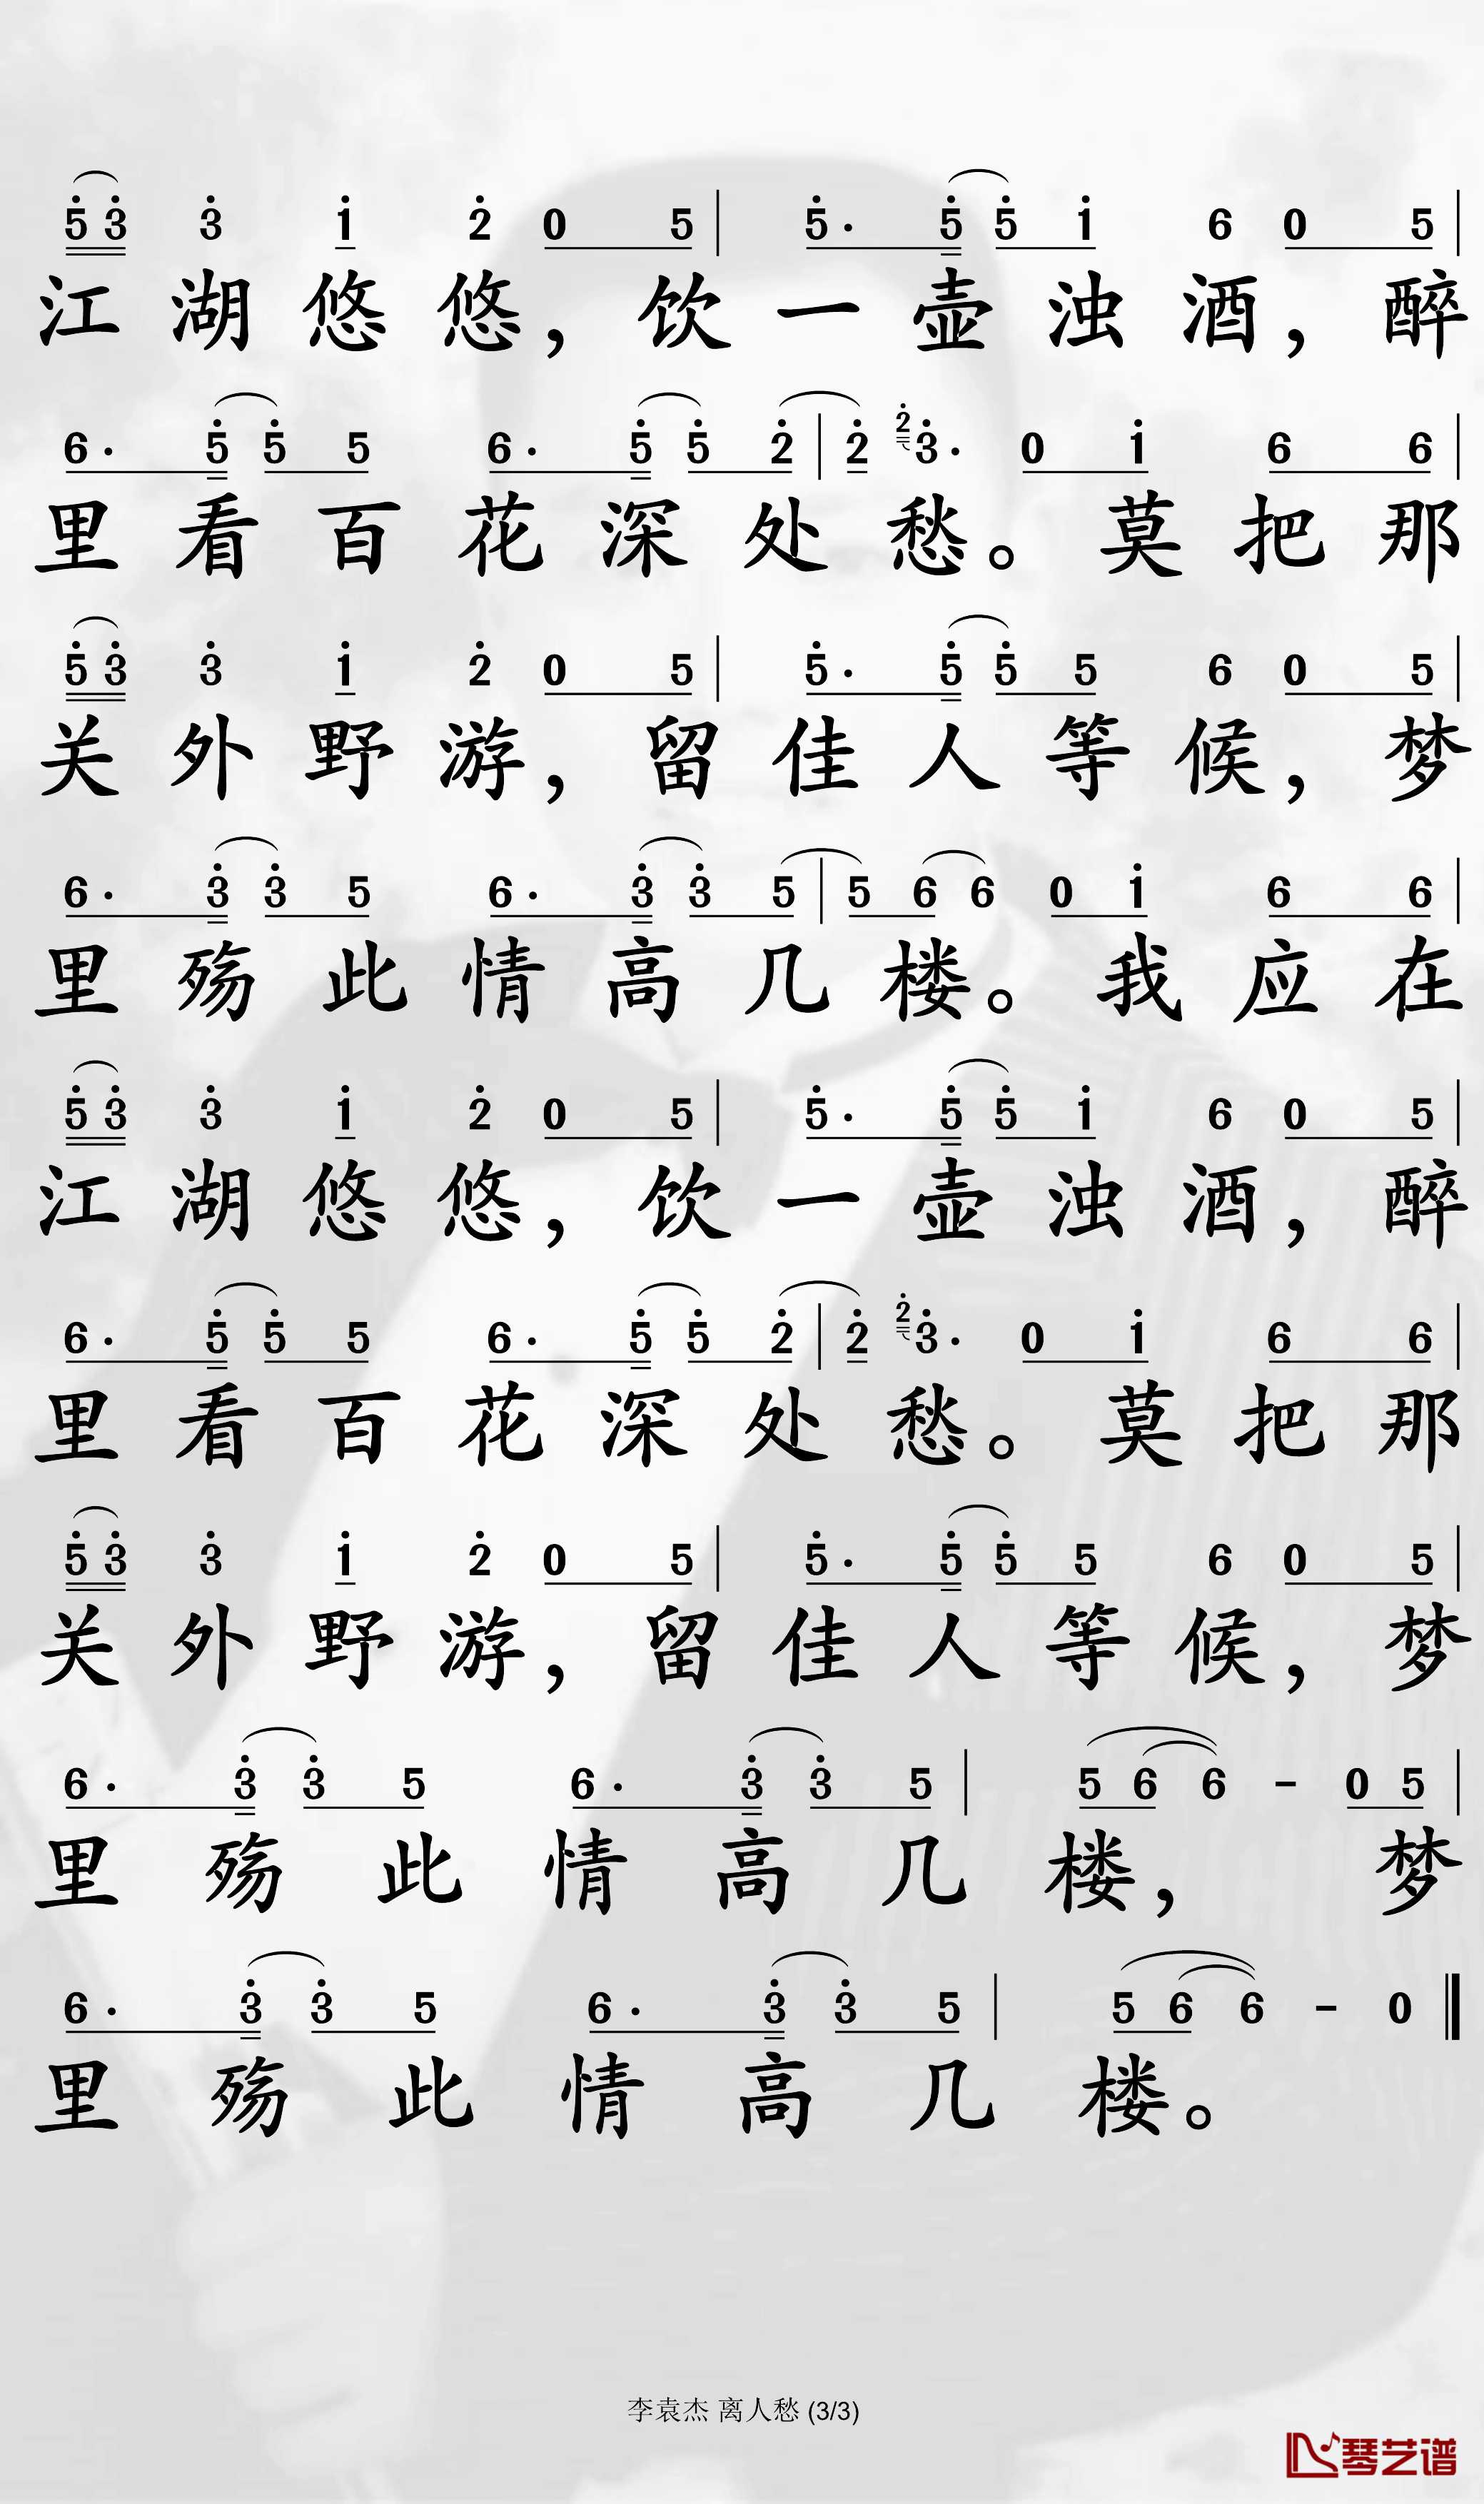 5 3 3 1 2 0 5 | 5· 5 5 1 6 0 5 |
江湖悠悠，饮一壶浊酒，醉
6· 5 5 5 6· 5 5 2 | 2 2 3· 0 1 6 6 |
里看百花深处愁。莫把那
5 3 3 1 2 0 5 | 5· 5 5 5 6 0 5 |
关外野游，留佳人等候，梦
6· 3 3 5 6· 3 3 5 | 5 6 6 0 1 6 6 |
里殇此情高几楼。我应在
5 3 3 1 2 0 5 | 5· 5 5 1 6 0 5 |
江湖悠悠，饮一壶浊酒，醉
6· 5 5 5 6· 5 5 2 | 2 2 3· 0 1 6 6 |
里看百花深处愁。莫把那
5 3 3 1 2 0 5 | 5· 5 5 5 6 0 5 |
关外野游，留佳人等候，梦
6· 3 3 5 6· 3 3 5 | 5 6 6 - 0 5 |
里殇此情高几楼，梦
6· 3 3 5 6· 3 3 5 | 5 6 6 - 0
里殇此情高几楼。
李袁杰 离人愁 (3/3)
琴艺谱